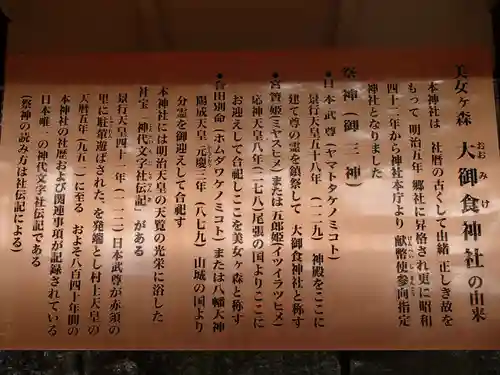 美女ヶ森 大御食神社の由来
おおみけ
本神社は 社暦の古くして由緒 正しき故を
もって 明治五年 郷社に昇格され更に昭和
四十二年から神社本庁より 献幣使参向指定
神社となりました
祭神（御三神）
●日本武尊（ヤマトタケノミコト）
景行天皇五十八年（一二九）神殿をここに
建て尊の霊を鎮祭して 大御食神社と称す
●宮簀姫（ミヤスヒメ）または五郎姫（イツイラツヒメ）
応神天皇八年（二七八）尾張の国よりここに
お迎えして合祀しここを美女ヶ森と称す
●誉田別命（ホムダワケノミコト）または八幡大神
陽成天皇 元慶三年（八七九）山城の国より
分霊を御迎えして合祀す
本神社には明治天皇の天覧の光栄に浴した
社宝 「神代文字社伝記」がある
景行天皇四十一年（一一二）日本武尊が赤須の
里に駐輦遊ばされた、を発端とし村上天皇の
天暦五年（九五一）に至る およそ八百四十年間の
本神社の社歴および関連事項が記録されている
日本唯一の神代文字社伝記である
（祭神の読み方は社伝記による）